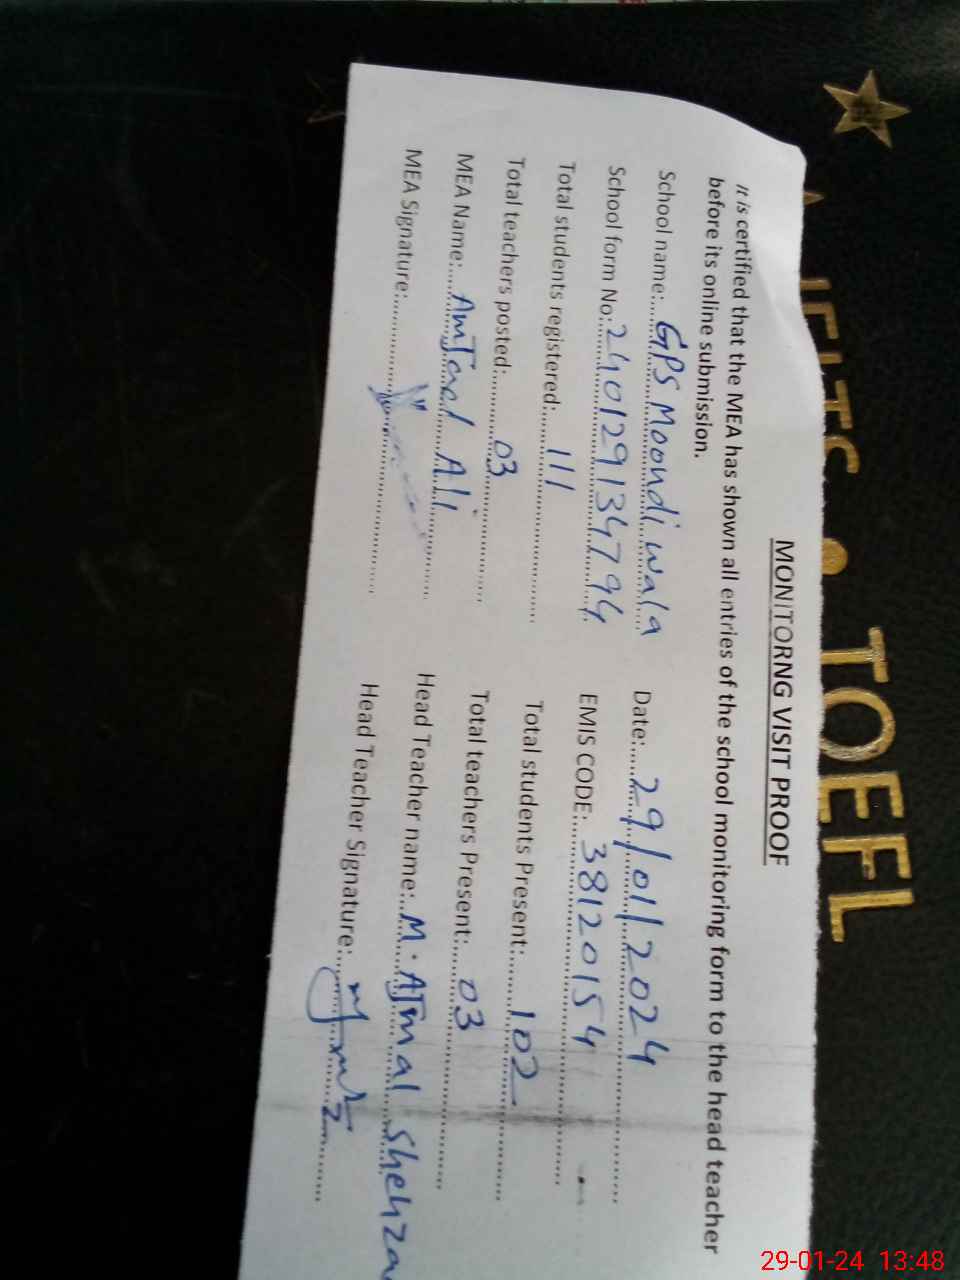 MONITORNG VISIT PROOF
It is certified that the MEA has shown all entries of the school monitoring form to the head teacher
before its online submission.
School name: GPS Moondiwala Date: 29/01/2024
School form No: 240129134794 EMIS CODE: 38120154
Total students registered: 111 Total students Present: 102
Total teachers posted: 03 Total teachers Present: 03
MEA Name: Amjad Ali Head Teacher name: M. Ajmal Shehza
MEA Signature: Head Teacher Signature:
TOEFL
29-01-24 13:48